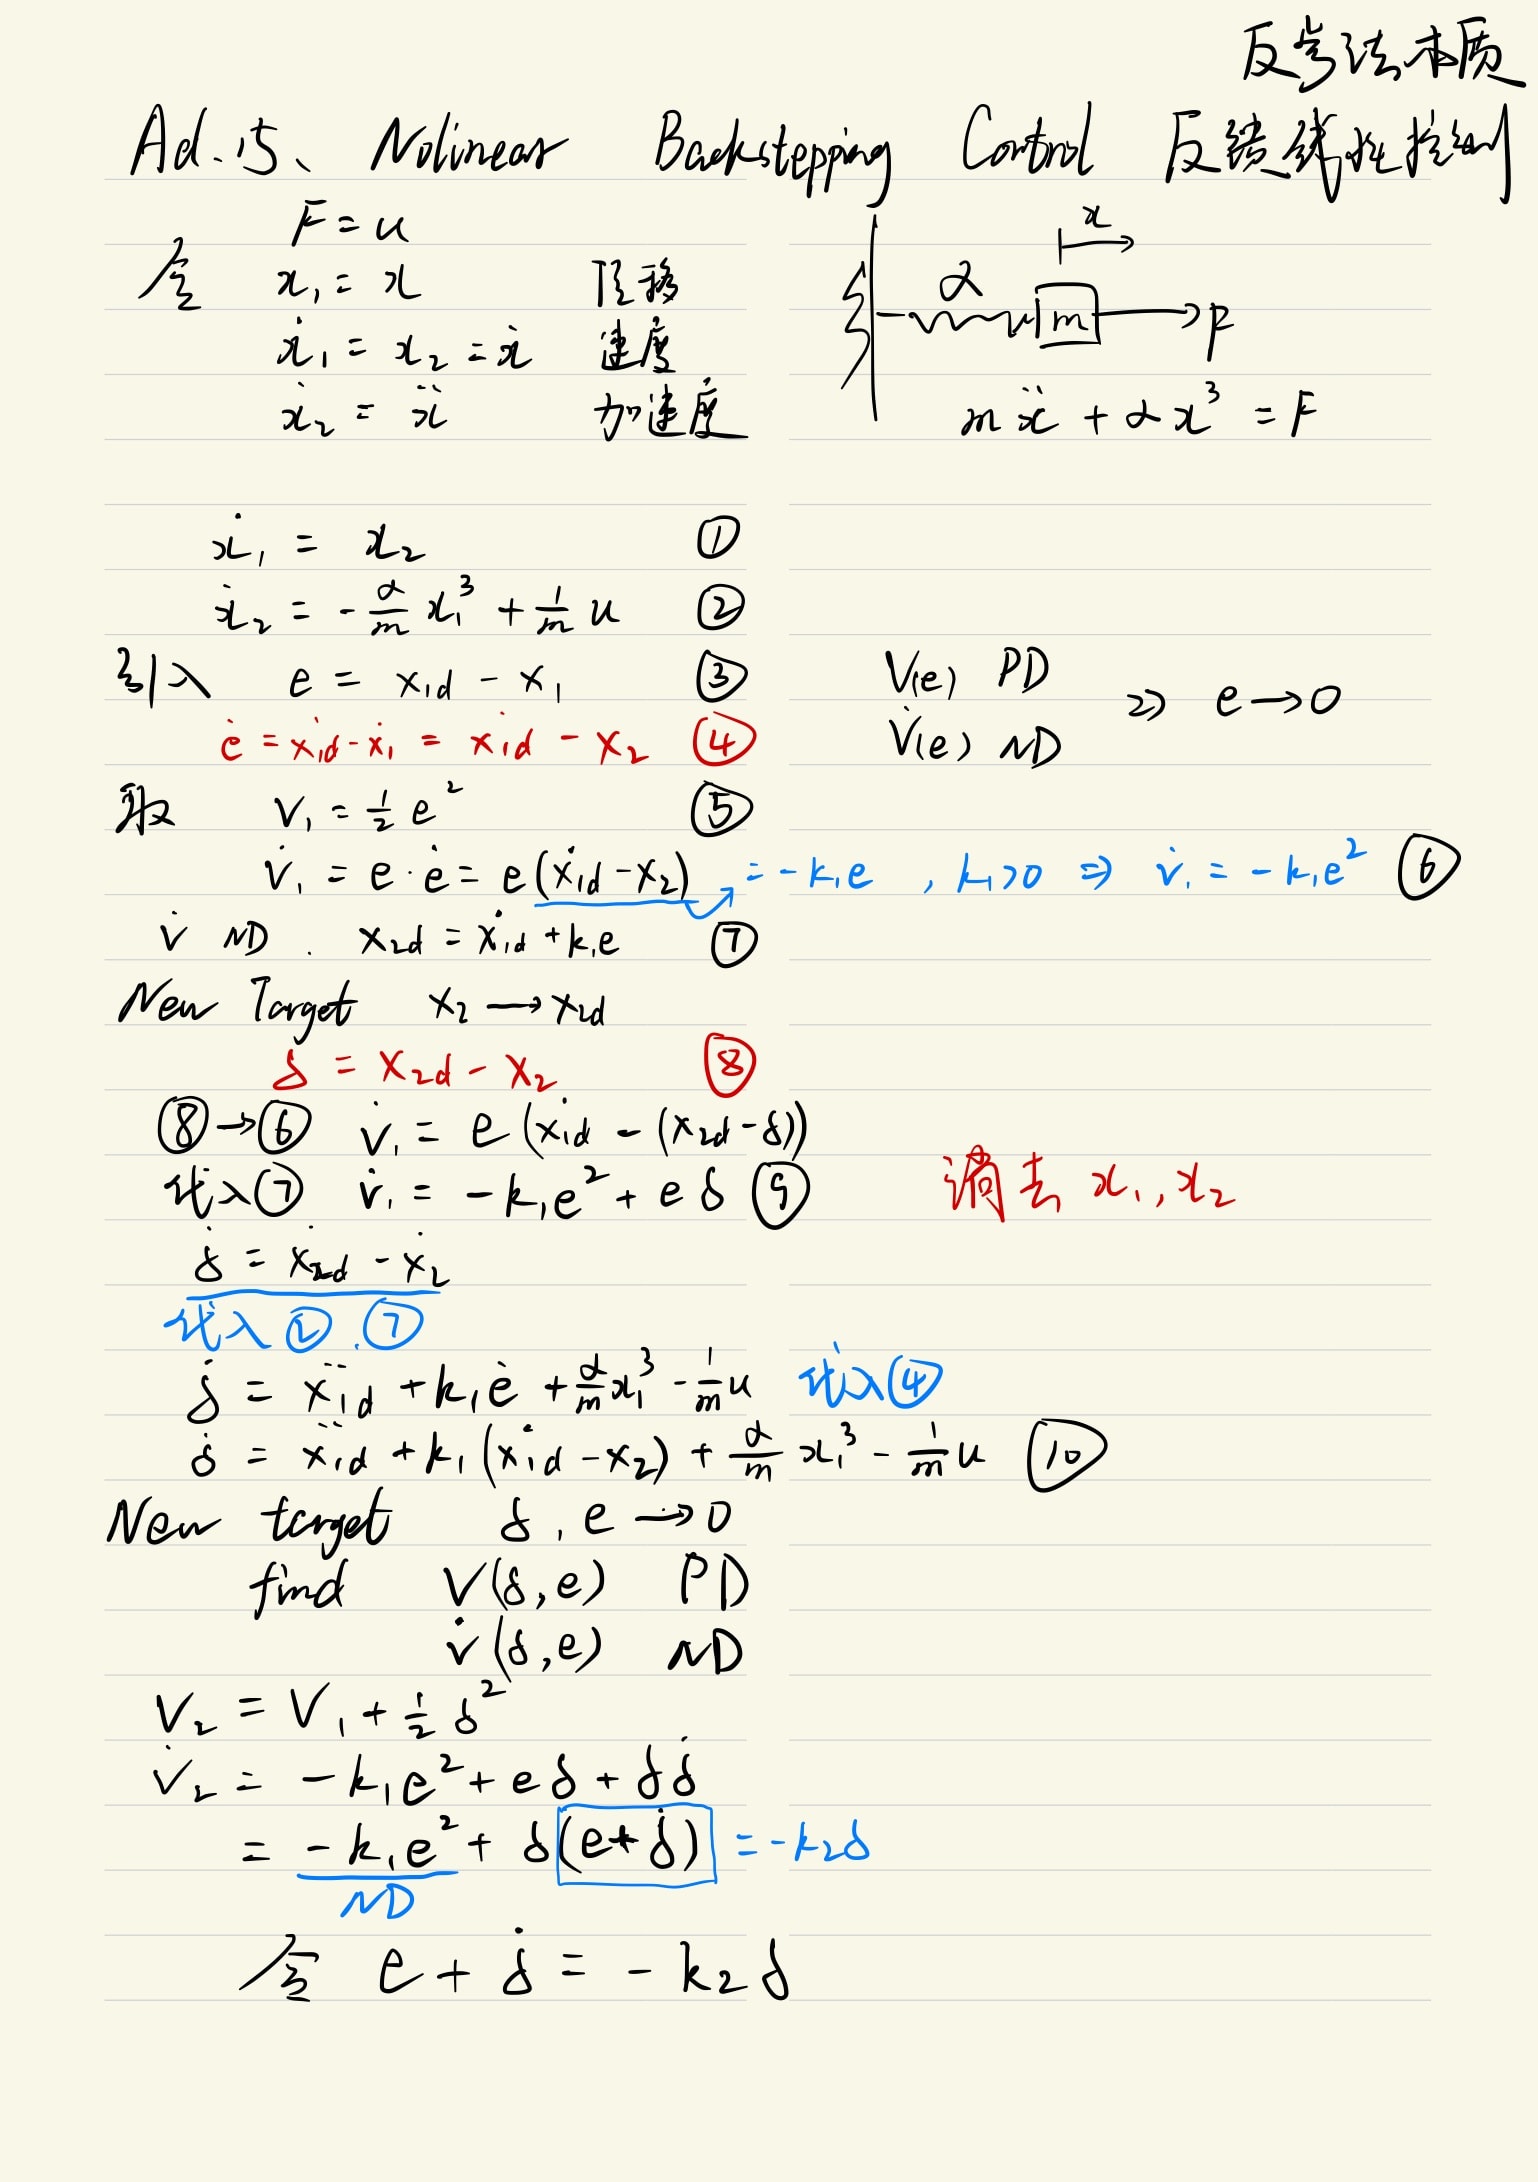 反步法本质
Ad.15、 Nolinear Backstepping Control 反馈线性控制
F = u
令 x₁ = x 位移
ẋ₁ = x₂ = ẋ 速度
ẋ₂ = ẍ 加速度
x
α m F
mẍ + αx³ = F
ẋ₁ = x₂ ①
ẋ₂ = -α/m x₁³ + 1/m u ②
引入 e = x₁d - x₁ ③
ė = ẋ₁d - ẋ₁ = ẋ₁d - x₂ ④
V(e) PD
V̇(e) ND ⇒ e → 0
取 V₁ = 1/2 e² ⑤
V̇₁ = e·ė = e(ẋ₁d - x₂) = -k₁e , k₁>0 ⇒ V̇₁ = -k₁e² ⑥
V̇ ND . x₂d = ẋ₁d + k₁e ⑦
New Target x₂ → x₂d
δ = x₂d - x₂ ⑧
⑧→⑥ V̇₁ = e(ẋ₁d - (x₂d - δ))
代入⑦ V̇₁ = -k₁e² + eδ ⑨
消去 x₁, x₂
δ̇ = ẋ₂d - ẋ₂
代入②.⑦
δ̇ = ẍ₁d + k₁ė + α/m x₁³ - 1/m u 代入④
δ̇ = ẍ₁d + k₁(ẋ₁d - x₂) + α/m x₁³ - 1/m u ⑩
New target δ, e → 0
find V(δ,e) PD
V̇(δ,e) ND
V₂ = V₁ + 1/2 δ²
V̇₂ = -k₁e² + eδ + δδ̇
= -k₁e² + δ(e+δ̇) = -k₂δ
ND
令 e + δ̇ = -k₂δ